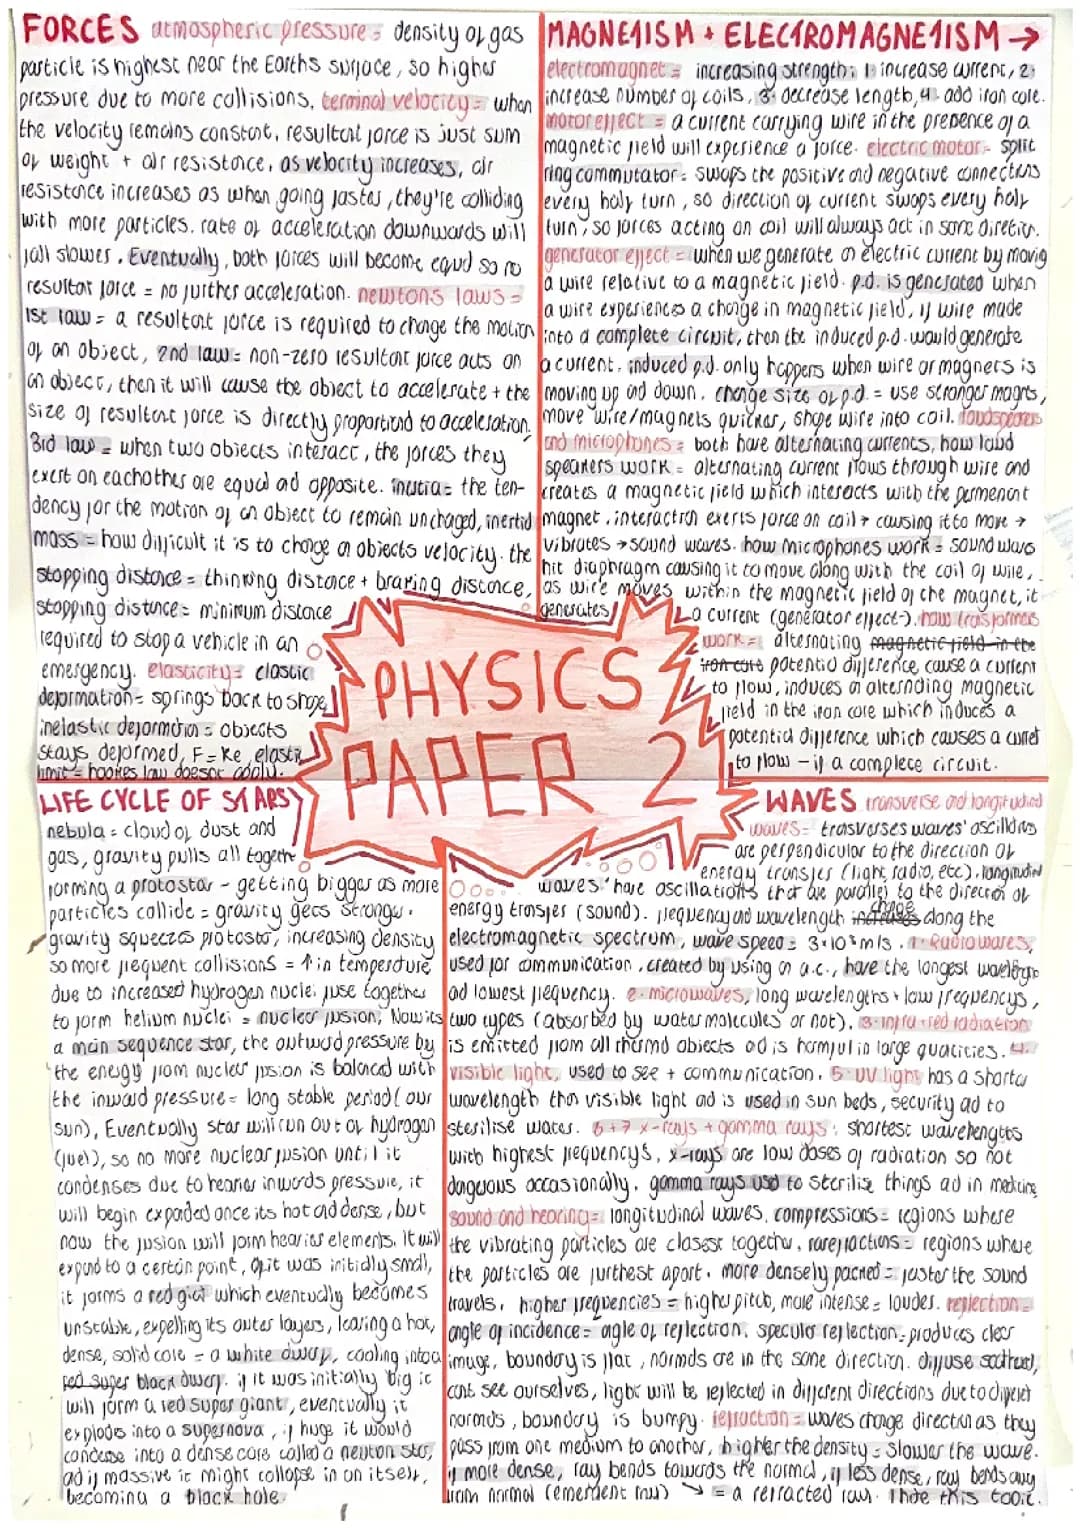 FORCES atmospheric pressure = density of gas
particle is highest near the Earths surface, so higher
pressure due to more collisions. terminal velocity = when
the velocity remains constant, resultant force is just sum
of weight + air resistance, as velocity increases, air
resistance increases as when going faster, they're colliding
with more particles. rate of acceleration downwards will
fall slower. Eventually, both forces will become equal so no
resultant force = no further acceleration. newtons laws =
1st law = a resultant force is required to change the motion
of an object, 2nd law = non-zero resultant force acts on
an object, then it will cause the object to accelerate + the
size of resultant force is directly proportional to acceleration.
3rd law = when two objects interact, the forces they
exert on eachother are equal ad opposite. inertia = the ten-
dency for the motion of an object to remain unchanged, inertial
mass = how difficult it is to change an objects velocity. the
stopping distance = thinking distance + braking distance,
stopping distance = minimum distance
required to stop a vehicle in an
emergency. elasticity = elastic
deformation = springs back to shape,
inelastic deformation = objects
stays deformed, F = Ke, elastic
limit = hookes law doesnt apply.
MAGNETISM + ELECTROMAGNETISM →
electromagnet = increasing strength: 1. increase current, 2.
increase number of coils, 3. decrease length, 4. add iron core.
motor effect = a current carrying wire in the presence of a
magnetic field will experience a force. electric motor = split
ring commutator = swaps the positive and negative connections
every half turn, so direction of current swaps every half
turn, so forces acting on coil will always act in same direction.
generator effect = when we generate an electric current by moving
a wire relative to a magnetic field. p.d. is generated when
a wire experiences a change in magnetic field, if wire made
into a complete circuit, then the induced p.d. would generate
a current. induced p.d. only happens when wire or magnets is
moving up and down. change size of p.d. = use stronger magnets,
move wire/magnets quicker, shape wire into coil. loudspeakers
and microphones = both have alternating currents, how loud
speakers work = alternating current flows through wire and
creates a magnetic field which interacts with the permenant
magnet. interaction exerts force on coil → causing it to move →
vibrates → sound waves. how microphones work = sound waves
hit diaphragm causing it to move along with the coil of wire,
as wire moves within the magnetic field of the magnet, it
generates a current (generator effect). how transformers
work = alternating magnetic field in the
iron core potential difference cause a current
to flow, induces an alternating magnetic
field in the iron core which induces a
potential difference which causes a current
to flow - if a complete circuit.
PHYSICS
PAPER 2
LIFE CYCLE OF STARS
nebula = cloud of dust and
gas, gravity pulls all together
forming a protostar - getting bigger as more
particles collide = gravity gets stronger.
gravity squeezes protostar, increasing density
so more frequent collisions = ↑ in temperature
due to increased hydrogen nuclei fuse together
to form helium nuclei = nuclear fusion, Now its
a main sequence star, the outward pressure by
the energy from nuclear fusion is balanced with
the inward pressure = long stable period (our
sun), Eventually star will run out of hydrogen
(fuel), so no more nuclear fusion until it
condenses due to heavier inwards pressure, it
will begin expanded once its hot and dense, but
now the fusion will form heavier elements. It will
expand to a certain point, if it was initially small,
it forms a red giant which eventually becomes
unstable, expelling its outer layers, leaving a hot,
dense, solid core = a white dwarf, cooling into a
red super black dwarf. if it was initially big it
will form a red super giant, eventually it
explodes into a supernova, if huge it would
condense into a dense core called a neutron star,
ad if massive it might collapse in on itself,
becoming a black hole.
WAVES transverse and longitudinal
waves = trasverses waves' oscillations
are perpendicular to the direction of
energy transfer (light, radio, etc). longitudinal
waves' have oscillations that are parallel to the direction of
energy transfer (sound). frequency and wavelength increases change along the
electromagnetic spectrum, wave speed = 3×10⁸ m/s. 1. Radiowaves,
used for communication, created by using an a.c., have the longest wavelength
ad lowest frequency. 2. microwaves, long wavelengths + low frequencys,
two types (absorbed by water molecules or not). 3. infra-red radiation
is emitted from all thermal objects ad is harmful in large quantities. 4.
visible light, used to see + communication. 5. UV light has a shorter
wavelength than visible light ad is used in sun beds, security ad to
sterilise water. 6+7 x-rays + gamma rays: shortest wavelengths
with highest frequencys, x-rays are low doses of radiation so not
dangerous occasionally. gamma rays used to sterilise things ad in medicine
sound and hearing = longitudinal waves. compressions = regions where
the vibrating particles are closest together. rarefractions = regions where
the particles are furthest apart. more densely packed = faster the sound
travels. higher frequencies = higher pitch, more intense = louder. reflection =
angle of incidence = angle of reflection. specular reflection = produces clear
image, boundary is flat, normals are in the same direction. diffuse scattered,
cant see ourselves, light will be reflected in different directions due to different
normals, boundary is bumpy. refraction = waves change direction as they
pass from one medium to another, higher the density = slower the wave.
if more dense, ray bends towards the normal, if less dense, ray bends away
from normal (emergent ray) ↘ = a refracted ray. I hate this topic.